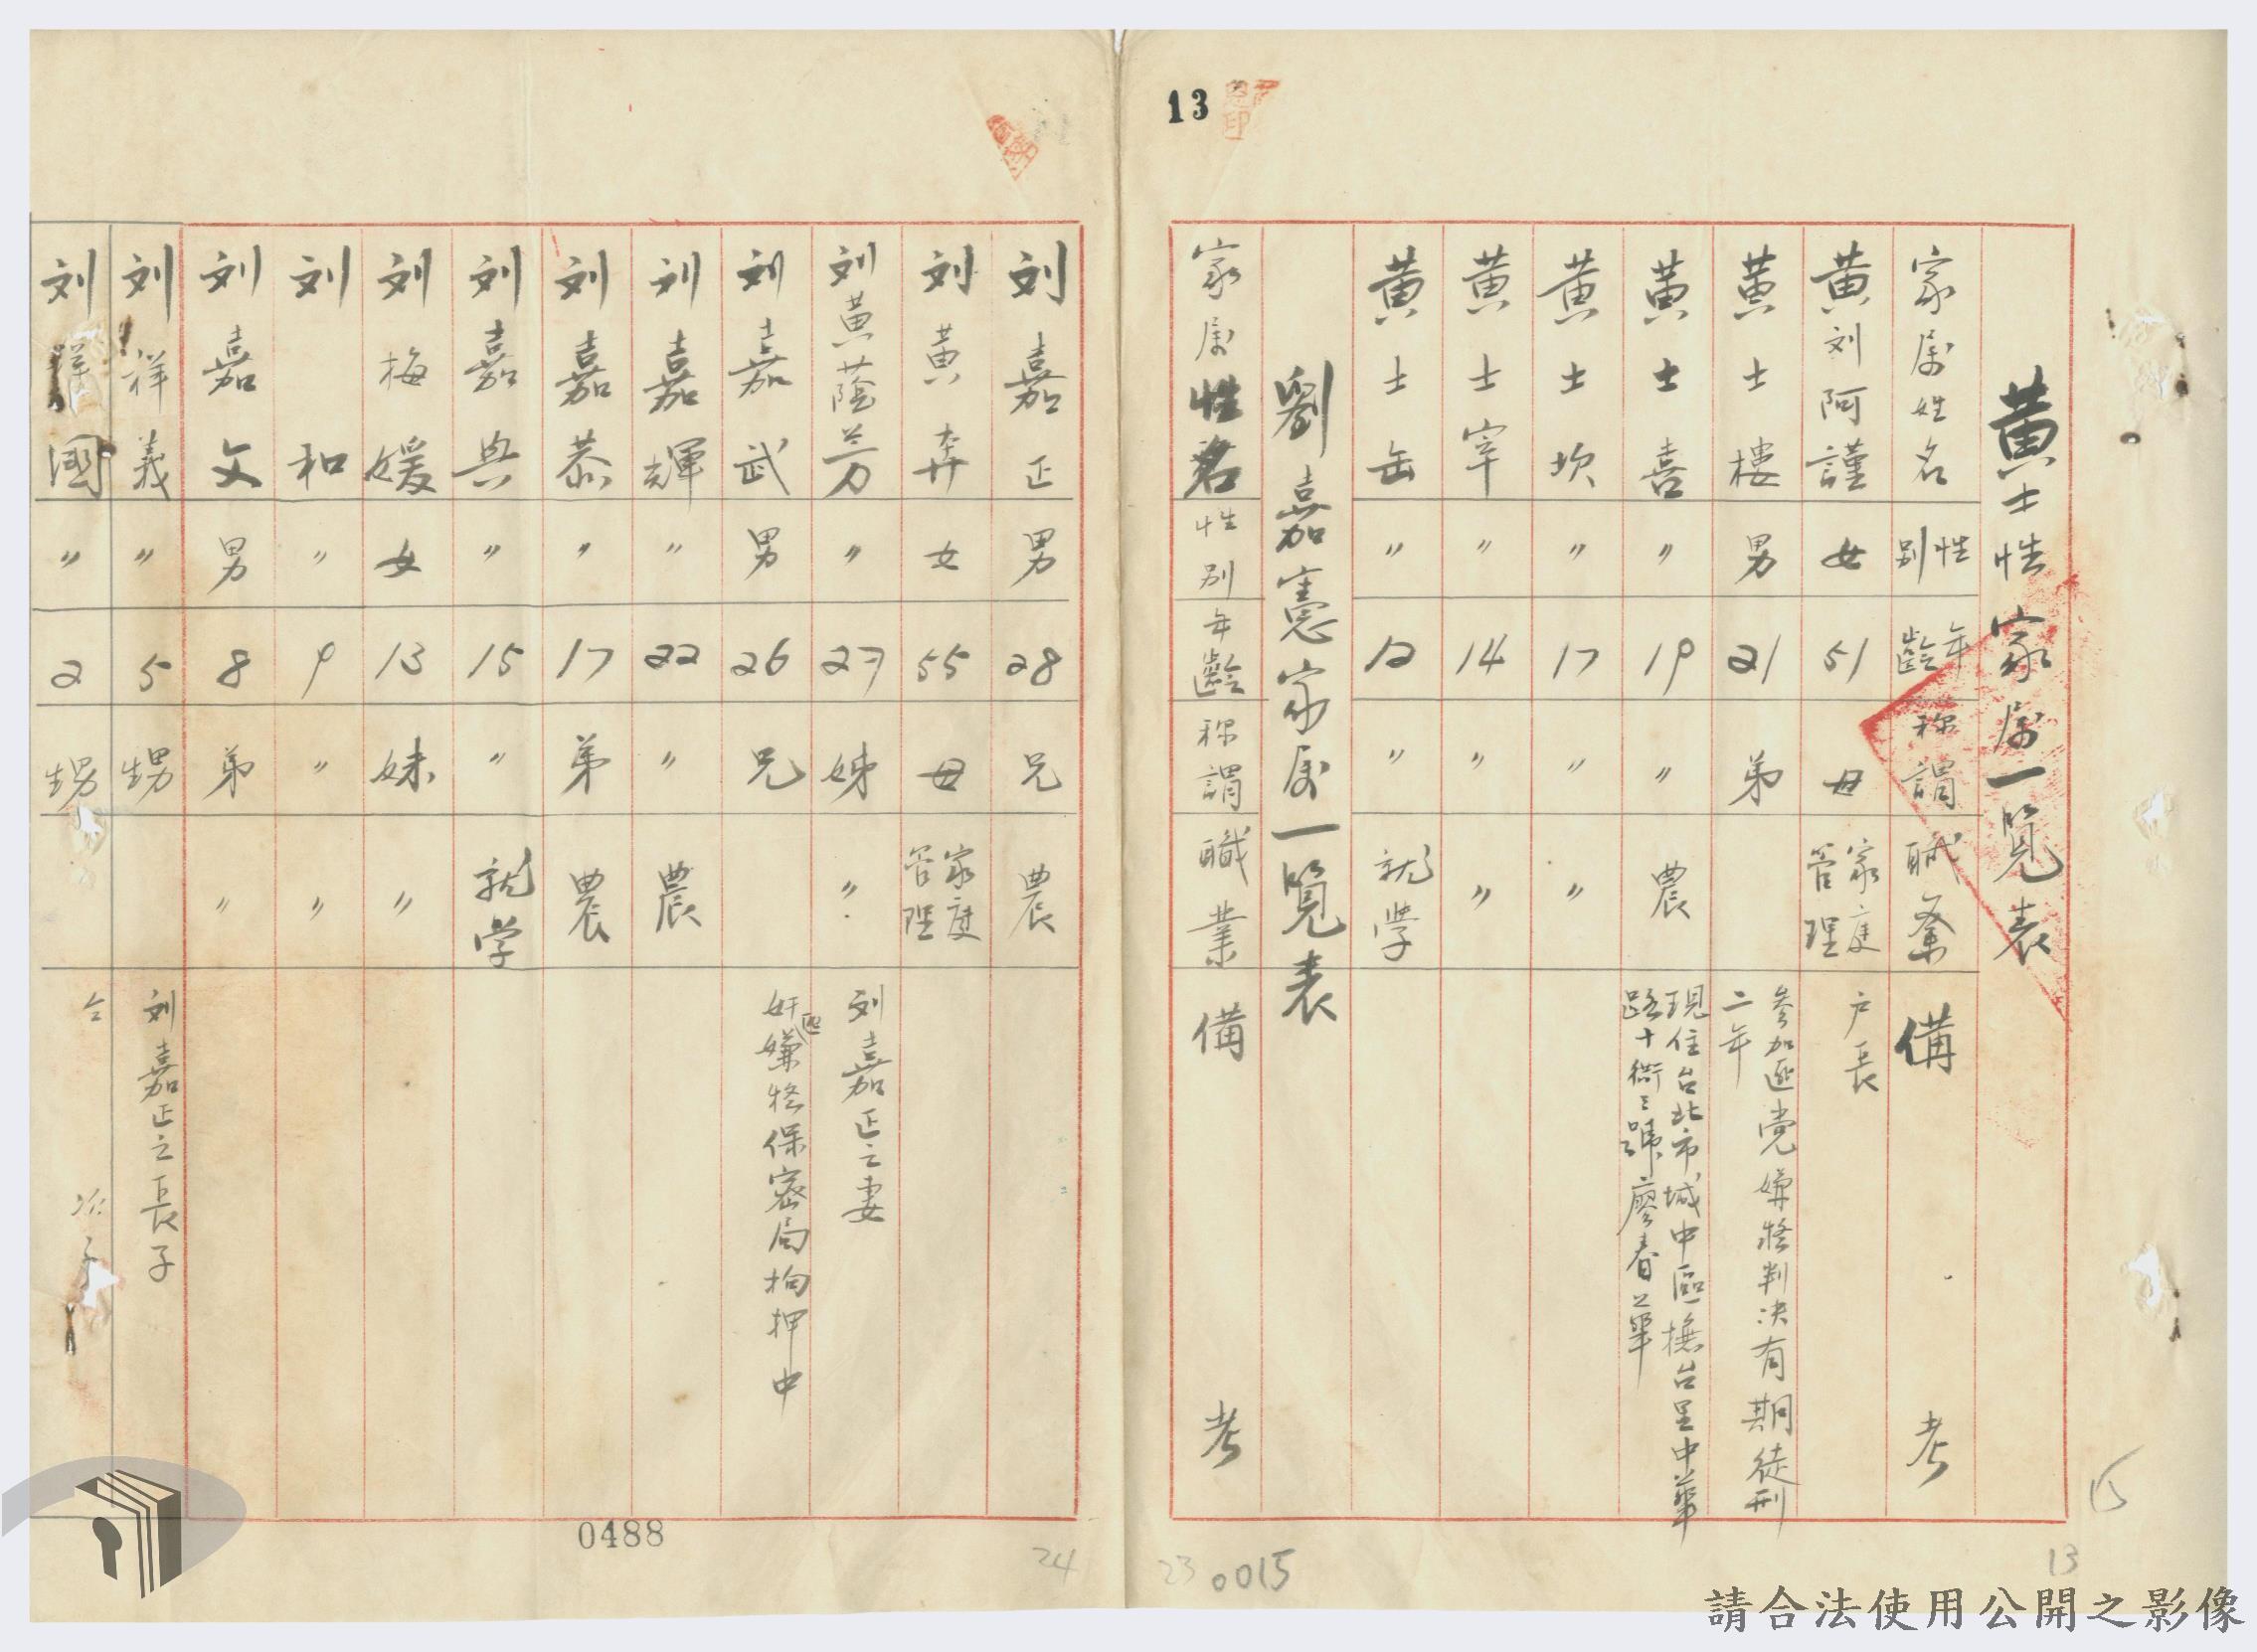 13
黄士性家属一覧表
家属姓名 性別 年齢 称謂 職業 備考
黄刘阿謹 女 51 母 家庭管理 户長
黄士樓 男 21 弟 参加匪党嫌経判决有期徒刑二年
黄士喜 〃 19 〃 農 現住台北市城中區撫台里中華路十衖三號廖春華
黄士坎 〃 17 〃 〃
黄士宰 〃 14 〃 〃
黄士缶 〃 12 〃 就学
劉嘉憲家属一覧表
家属性名 性別 年齢 称謂 職業 備考
刘嘉正 男 28 兄 農
刘黄奔 女 55 母 家庭管理
刘黄蔭芳 〃 27 姊 〃 刘嘉正之妻
刘嘉武 男 26 兄 奸匪嫌経保密局拘押中
刘嘉輝 〃 22 〃 農
刘嘉恭 〃 17 弟 農
刘嘉興 〃 15 〃 就学
刘梅媛 女 13 妹 〃
刘和 〃 9 〃 〃
刘嘉文 男 8 弟 〃
刘祥義 〃 5 甥 刘嘉正之長子
刘祥國 〃 2 甥 仝 次子
15
13
0015
23
24
0488
請合法使用公開之影像